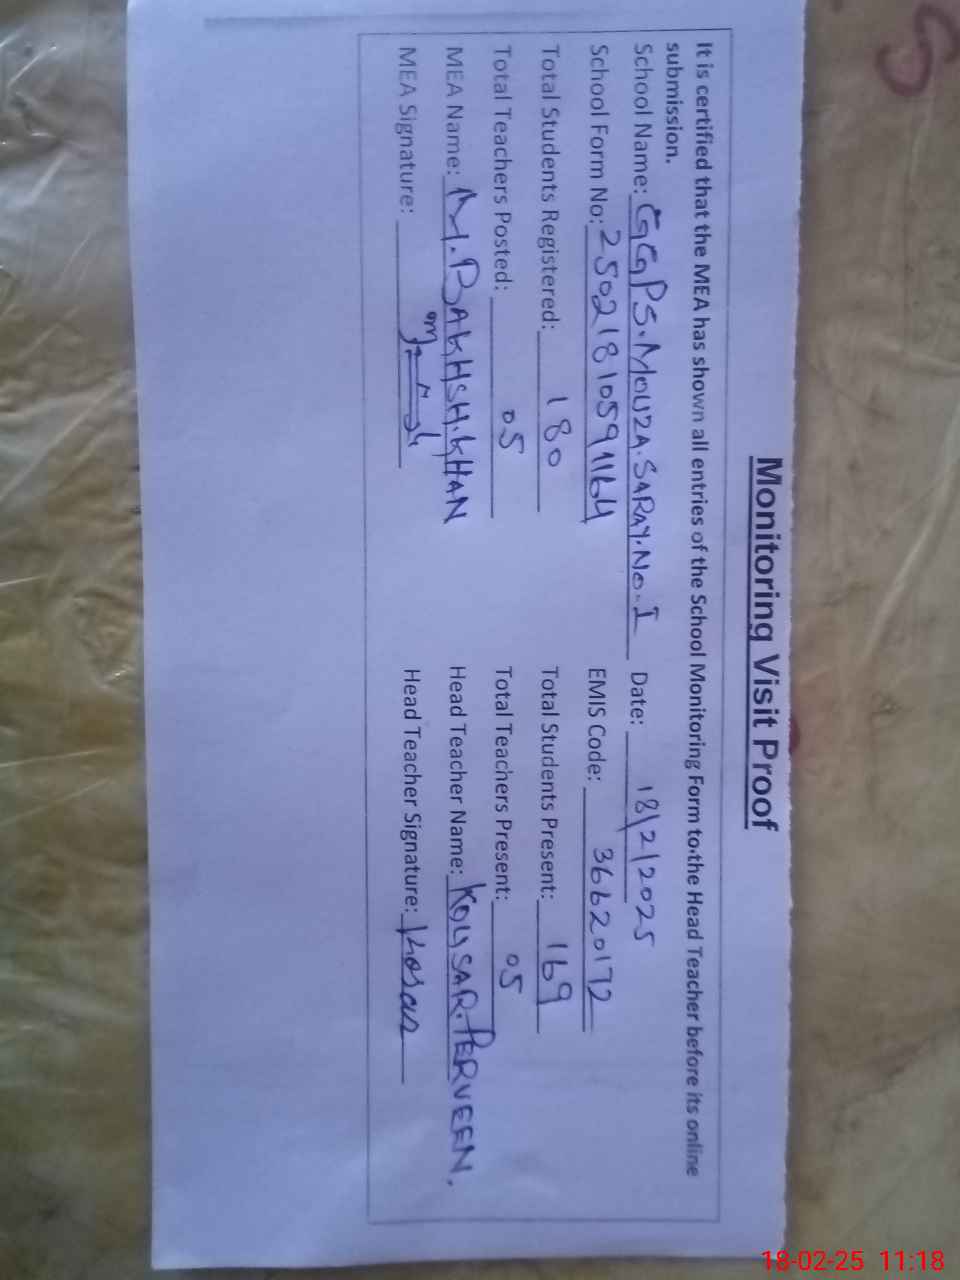 Monitoring Visit Proof
It is certified that the MEA has shown all entries of the School Monitoring Form to the Head Teacher before its online
submission.
School Name: GGPS.MOUZA.SARAY.No.I Date: 18/2/2025
School Form No: 25021810591164 EMIS Code: 36620172
Total Students Registered: 180 Total Students Present: 169
Total Teachers Posted: 05 Total Teachers Present: 05
MEA Name: M.BAKHSH.KHAN Head Teacher Name: KOUSAR.PERVEEN.
MEA Signature: Head Teacher Signature: Kosar
S
18-02-25 11:18